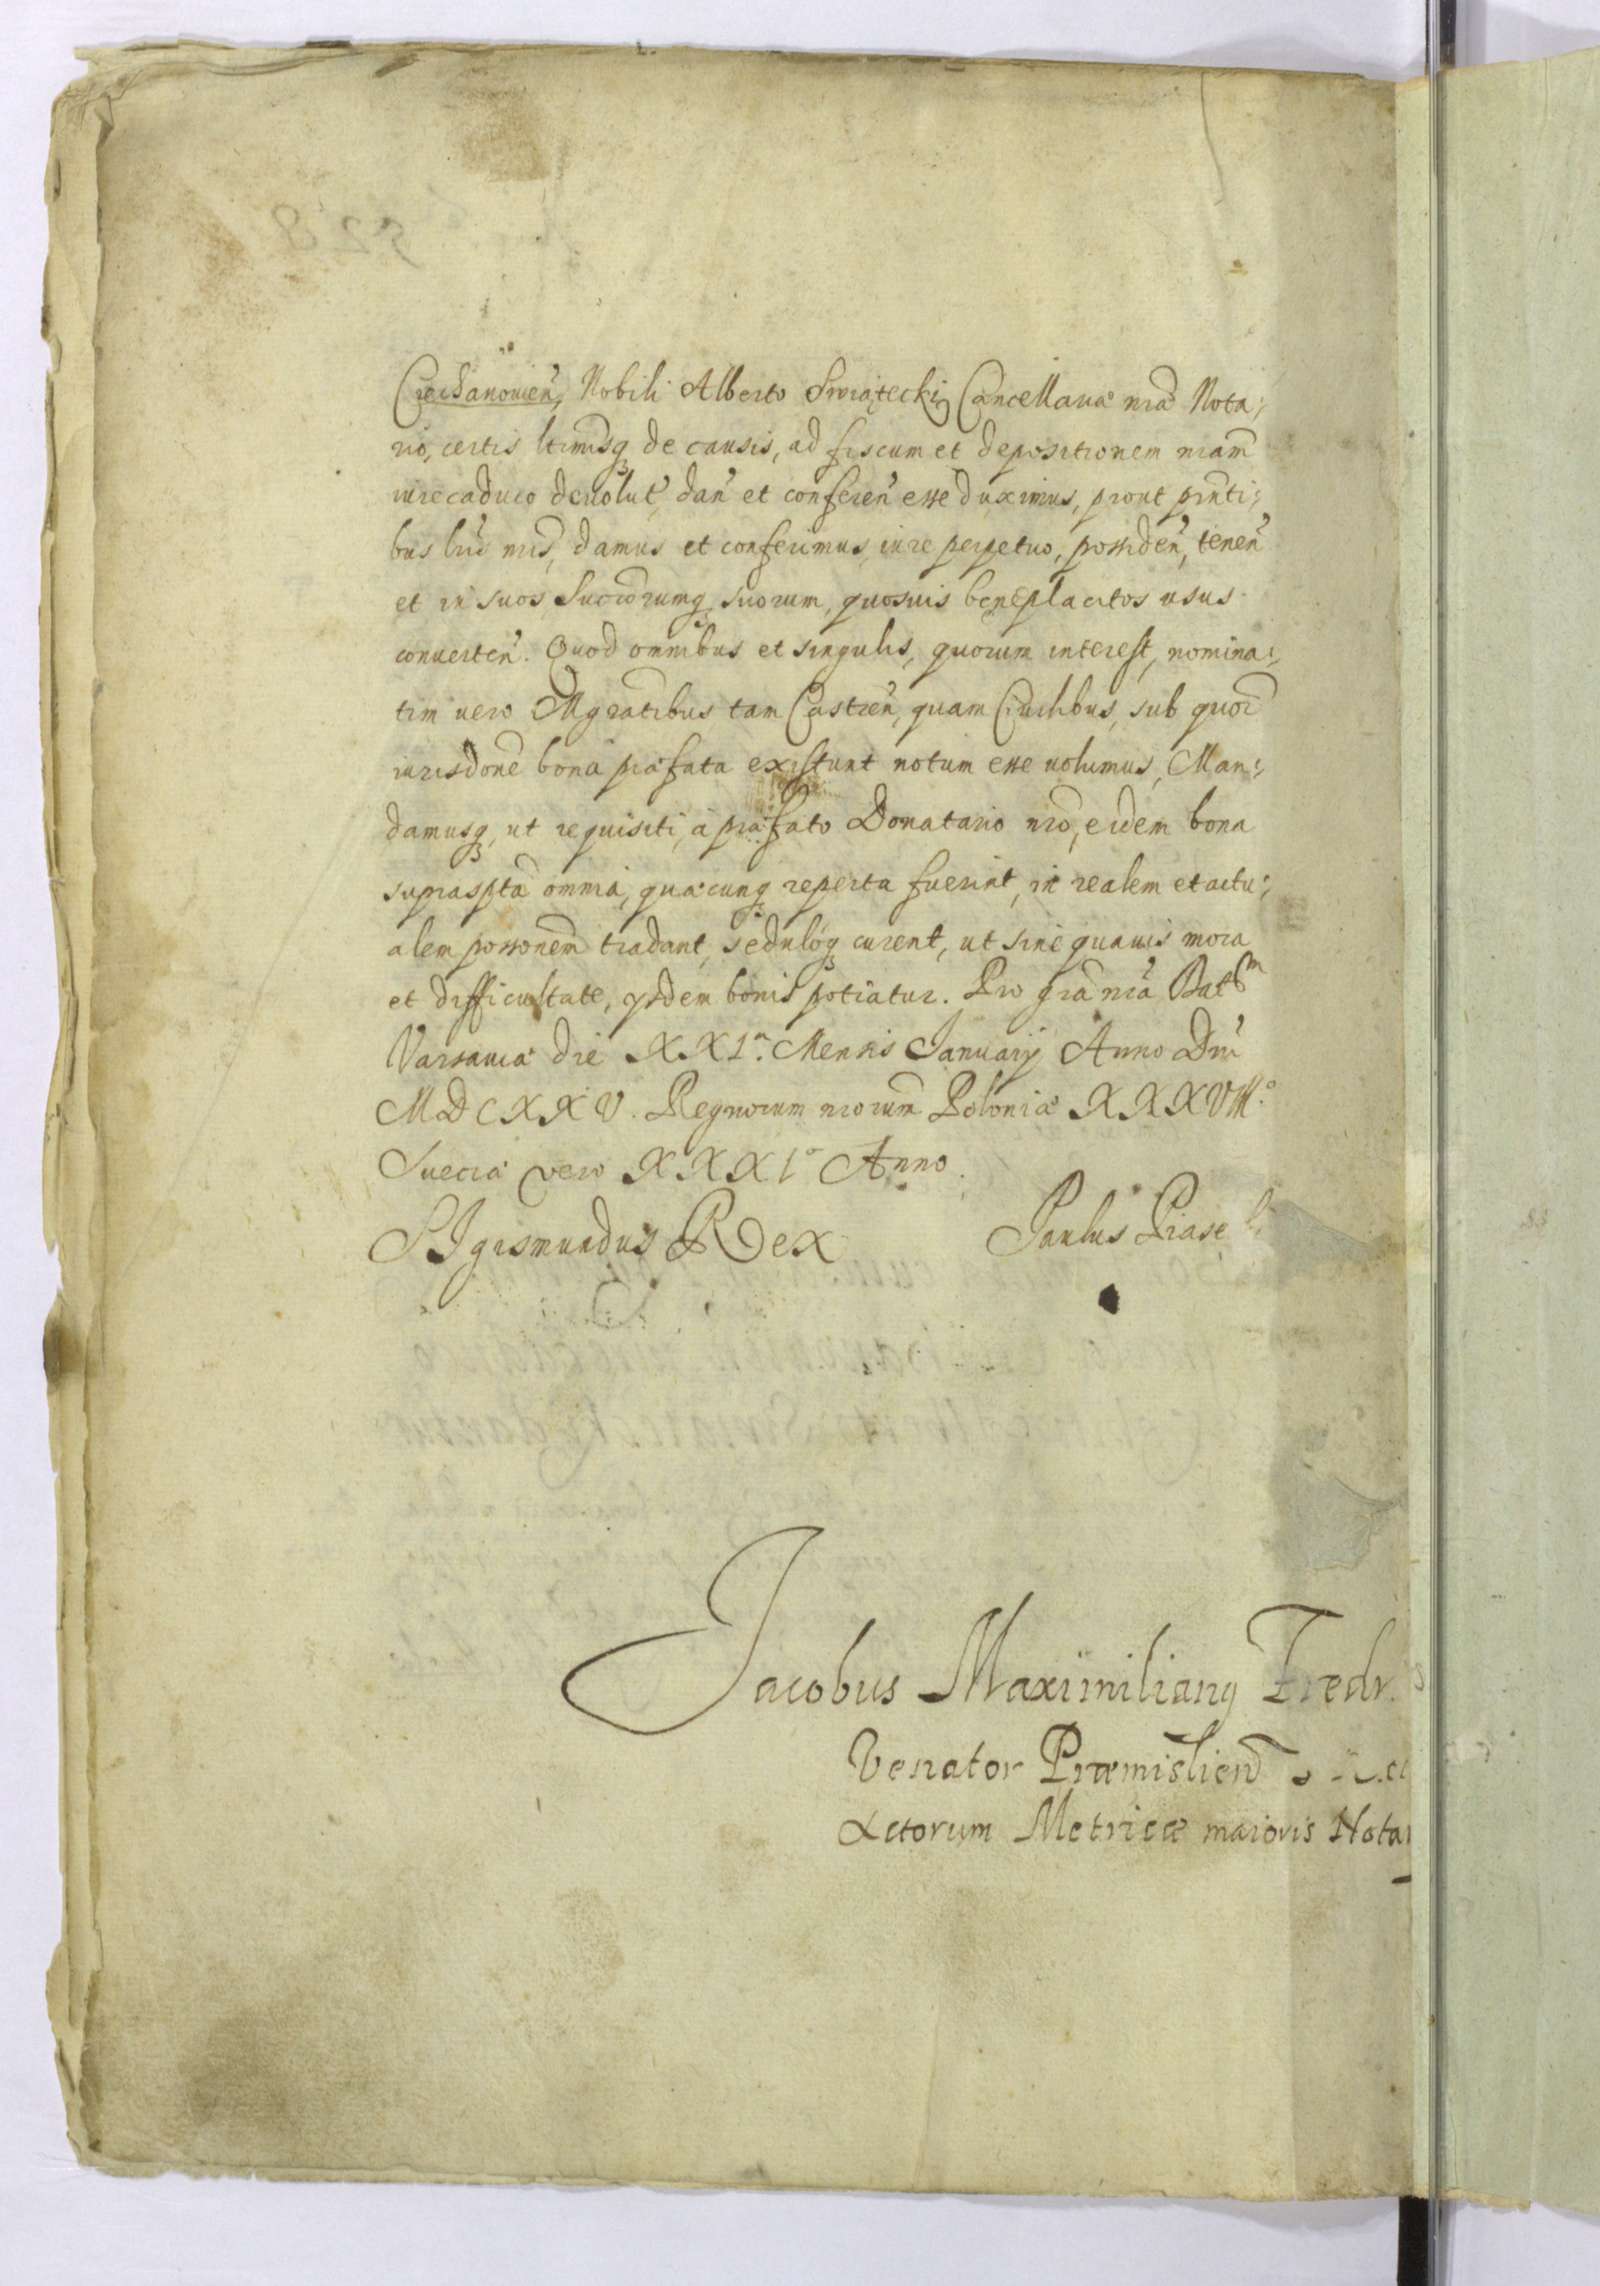 Ciechanouień, Nobili Alberto Swiątecki Cancellaria nrā Nota:
rio, certis ltimisq de causis, ad fiscum et depositionem nram
iure caduco devolut, dań et confereń esse duximus, prout pnti:
bus lris nris, damus et conferimus, iure perpetuo, possideń, teneń
et in suos Succrorumq suorum, quosuis beneplacitos usus
conuerteń. Quod omnibus et singulis, quorum interest, nomina:
tim uero Mgratibus tam Castreń, quam Ciuilibus, sub quor
iurisdone bona præfata existunt notum esse uolumus, Man:
damusq, ut requisiti, à præfato Donatario nro, eidem bona
suprasptā omnia, quæcunq reperta fuerint, in realem et actu:
alem possonem tradant, sedulóq curent, ut sine quauis mora
et difficultate, ysdem bonis potiatur. Pro grā nrā Datt m
Varsauiæ die XXI a. Mensis Januarij Anno Dni
MDCXXV. Regnorum nrorum Poloniæ XXXVIII o
Sueciæ vero XXXI o Anno.
SIgismundus Rex Paulus Piase
Jacobus Maximilianq Fredr
Venator Præmislień
Actorum Metricæ maioris Nota